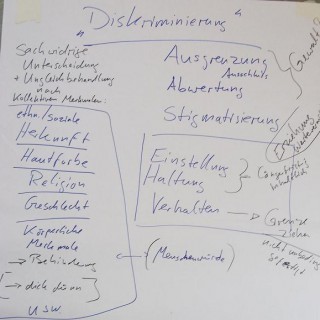 " Diskriminierung "
Sachwidrige
Unterscheidung
+ Ungleichbehandlung
nach
Kollektiven Merkmalen:
ethn./soziale
Herkunft
Hautfarbe
Religion
Geschlecht
Körperliche
Merkmale
→ Behinderung
[→ dick dünn]
usw
Ausgrenzung
Ausschluss
Abwertung
Stigmatisierung
Gewalt?
Einstellung
Haltung
Verhalten → Grenze
ziehen
nicht
(Menschenwürde)